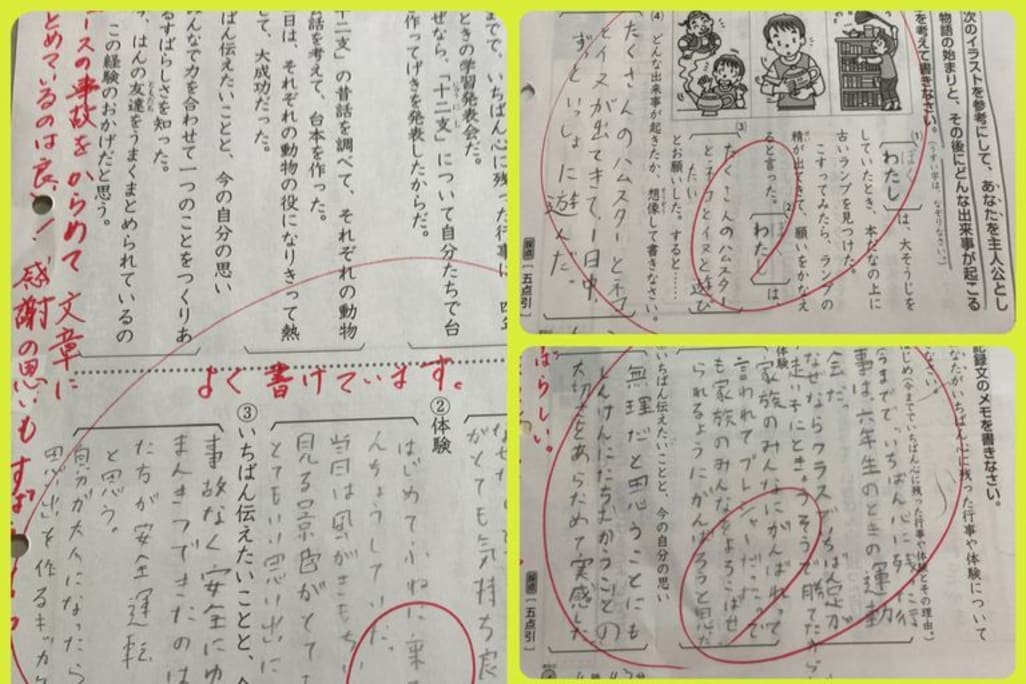 までで、いちばん心に残った行事は、四年
ときの学習発表会だ。
ぜなら、「十二支」について自分たちで台
作ってげきを発表したからだ。
十二支」の昔話を調べて、それぞれの動物
会話を考えて、台本を作った。
日は、それぞれの動物の役になりきって熱
して、大成功だった。
ばん伝えたいことと、今の自分の思い
みんなで力を合わせて一つのことをつくりあ
るすばらしさを知った。
、はんの友達をうまくまとめられているの
この経験のおかげだと思う。
ースの事故をからめて文章に
とめているのは良い！感謝の思いも
よく書けています。
がとても気持ち良
②体験
はじめてふねに乗
んちょうしていた。
当日は風がきもち
見る景色がとて
とてもいい思い出に
③いちばん伝えたいことと、
事故なく安全にゆ
まんきつできたのは
たちが安全運転
と思う。
自分が大人になったら
思い出を作るキッカ
次のイラストを参考にして、あなたを主人公とし
物語の始まりと、その後にどんな出来事が起こる
を考えて書きなさい。
(うすい字は、なぞりなさい。)
(1)
ぼく
わたし
は、大そうじを
していたとき、本だなの上に
古いランプを見つけた。
こすってみたら、ランプの
精が出てきて、願いをかなえ
ると言った。
(2)
わたし
は
(3)
たくさんのハムスター
とネコとイヌと遊び
たい
とお願いした。すると……
(4)
どんな出来事が起きたか、想像して書きなさい。
たくさんのハムスターとネコ
とイヌが出てきて、一日中
ずっといっしょに遊んだ。
採点
五点引
記録文のメモを書きなさい。
なたがいちばん心に残った行事や体験について
なさい。
はじめ(今まででいちばん心に残った行事や体験とその理由)
今までで、いちばん心に残った行
事は六年生のときの運動
会だ。
なぜならクラスでいちばん足が
走い子にときょうそうで勝てたから
体験
家族のみんなにがんばれって
言われてプレッシャーだったで
も家族のみんなをよろこばせ
られるようにがんばろうと思った
いちばん伝えたいことと、今の自分の思い
無理だと思うことにも
しんけんにたちむかうことの
大切さをあらためて実感した
ばらしい。
採点
五点引